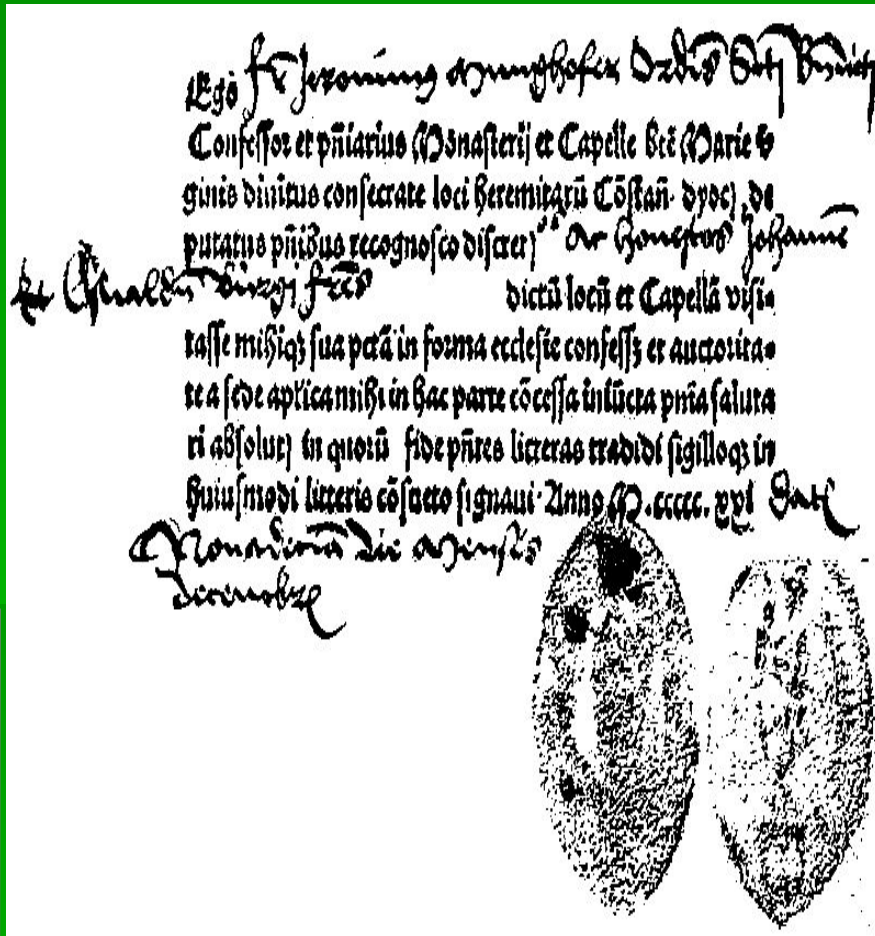 Ego fr Jeronimus Ordis Scti
Confessor et pñiarius Monasterij et Capelle btē Marie v̓
ginis divinitus consecrate loci heremitarū Cōstañ. dyoc̄, de
putatus pñibus recognosco discret̄ ac honestos Johannē
et fr̄es dictū locū et Capellā visi-
tasse mihiqꝫ sua pctā in forma ecclesie confessꝫ et auctorita-
te a sede aplica mihi in hac parte cōcessa iniūcta pnīa saluta
ri absolut̄ in quorū fide pñtes litteras tradidi sigilloqꝫ in
huiusmodi litteris cōsueto signaui. Anno M.ccccc.xxi dat̄
die mensis
decembr̄